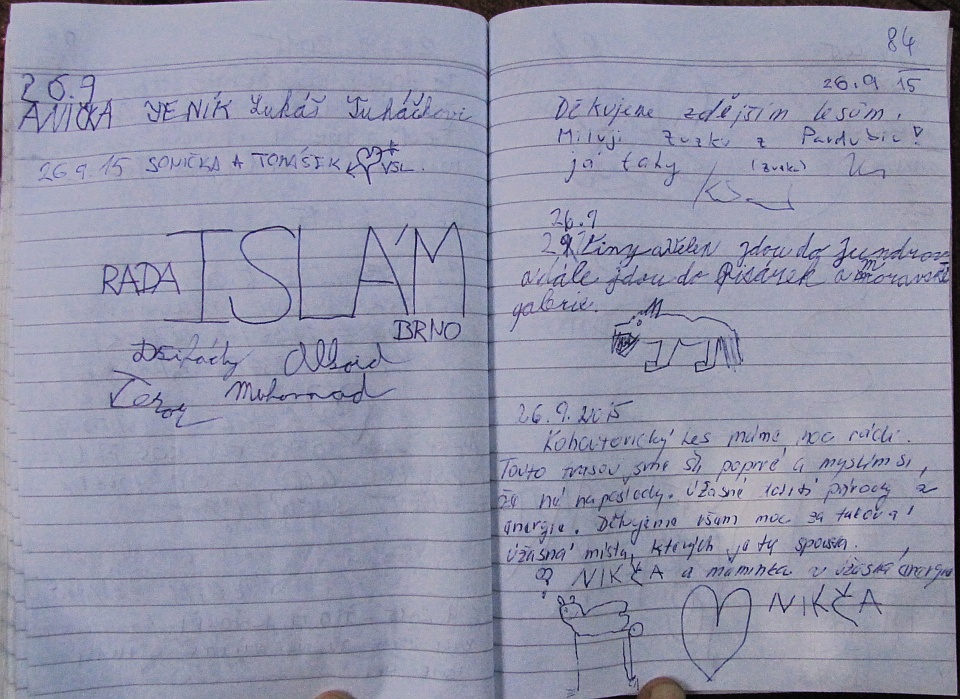 26.9
ANIČKA JENÍK Lukáš Tuháčkovi
26.9.15 SONIČKA A TOMÁŠEK VSL.
RADA ISLÁM
BRNO
Mohamad
84
26.9 15
Děkujeme zdějším lesům.
Miluji Zuzku z Pardubic!
já taky (Zuzka)
26.9
jdou do Jundrova
a dále jdou do Pisárek a moravské
galerie.
26.9.2015
Kohoutovický les máme moc rádi.
Touto trasou jsme šli poprvé a myslím si,
že ne naposledy. Úžasné přírody a
energie. Děkujeme všem moc za taková
úžasná místa, kterých je tu spousta.
NIKČA a maminka a úžasná energie
NIKČA